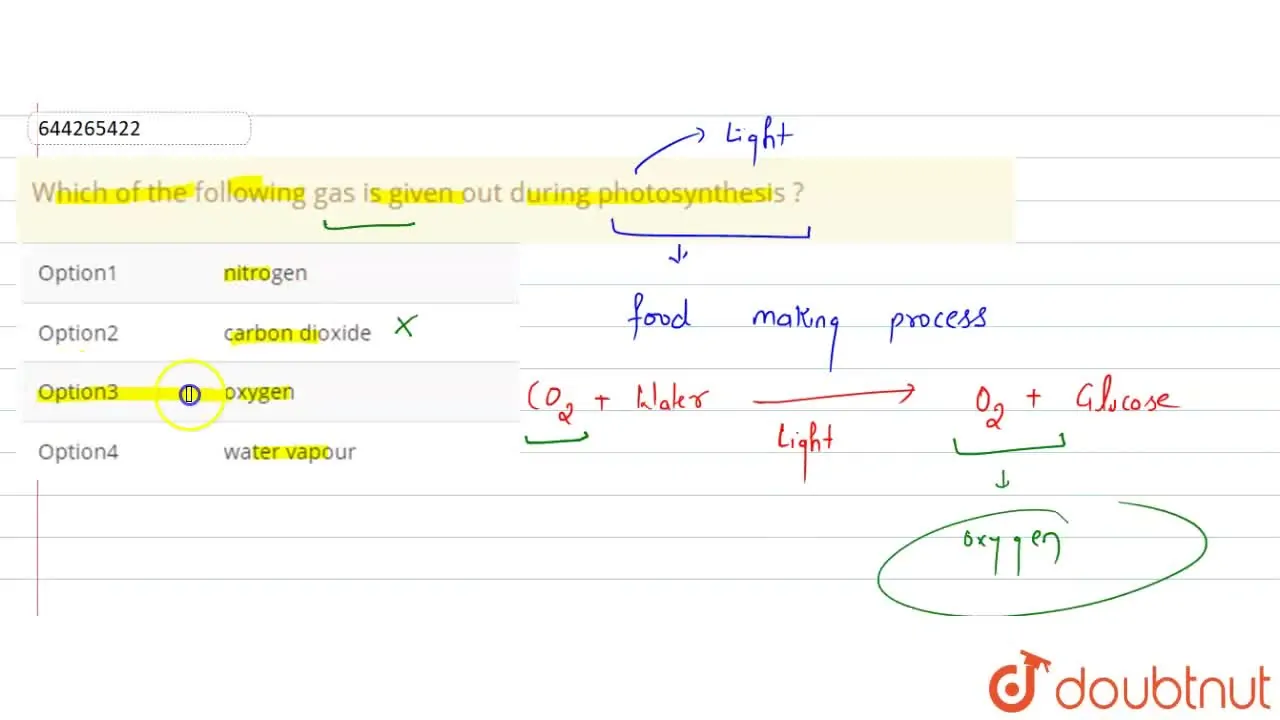 644265422
Light
Which of the following gas is given out during photosynthesis ?
Option1 nitrogen
food making process
Option2 carbon dioxide X
Option3 oxygen
CO2 + Water → O2 + Glucose
Light
Option4 water vapour
oxygen
doubtnut